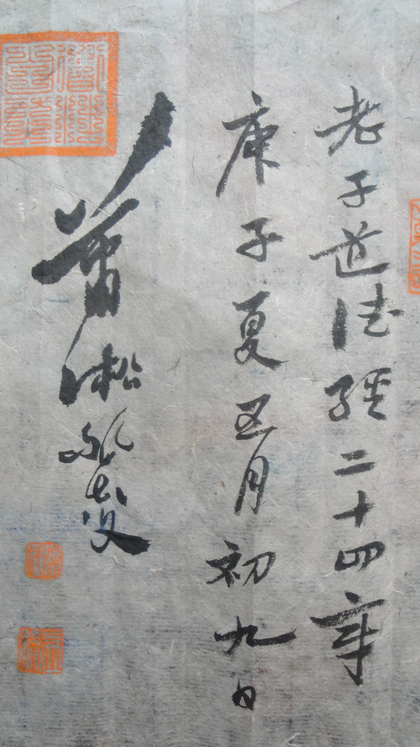 老子道德经二十四章
庚子夏五月初九日
曾淞